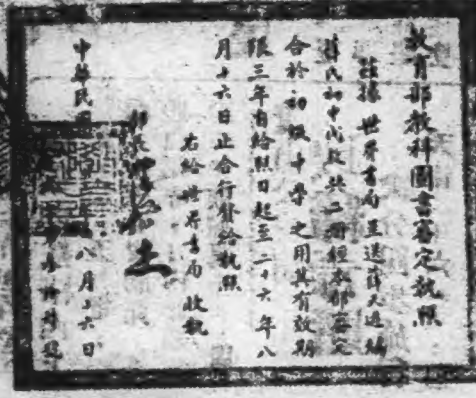 教育部教科圖書審定執照
茲據世界書局呈送薛天遊編
薛氏初中代數共二冊經本部審定
合於初級中學之用其有效期
限三年自給照日起至二十六年八
月十六日止合行發給執照
右給世界書局收執
中華民國 八月十六日